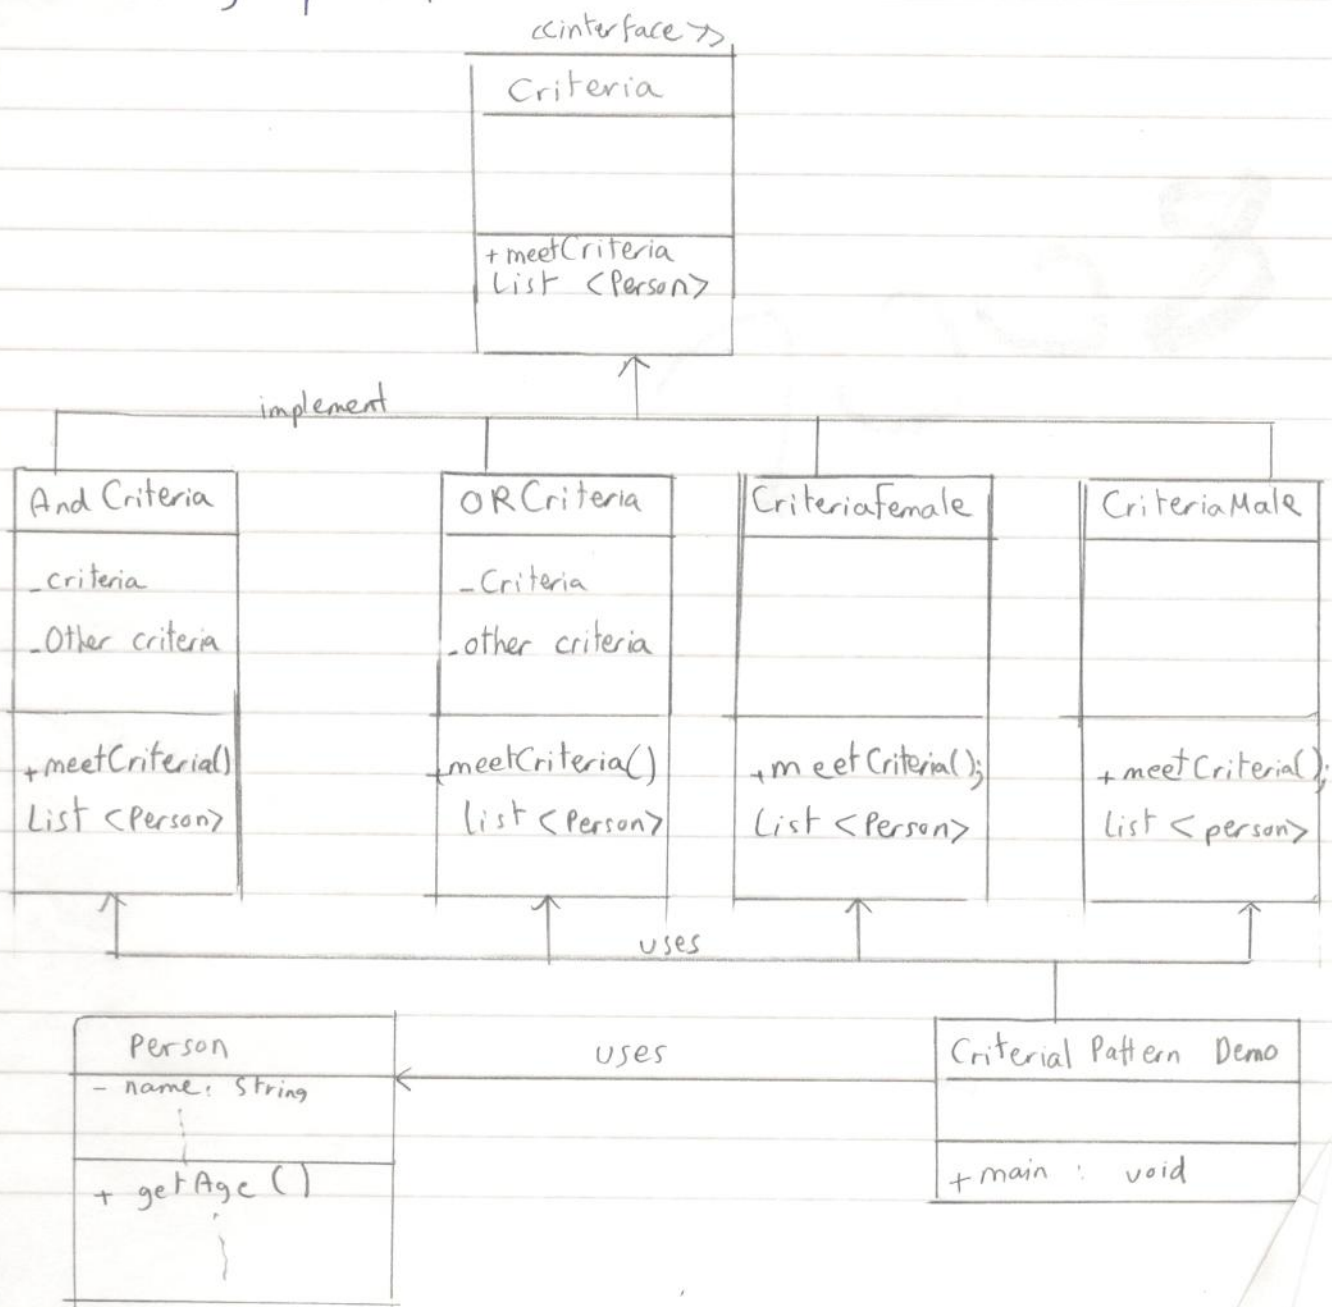 <<interface>>
Criteria
+ meetCriteria
List <Person>
implement
And Criteria
- criteria
- Other criteria
+ meetCriteria()
List <Person>
ORCriteria
- Criteria
- other criteria
+ meetCriteria()
List <Person>
CriteriaFemale
+ meetCriteria();
List <Person>
CriteriaMale
+ meetCriteria();
List <person>
uses
Person
- name: String
+ getAge ()
uses
Criterial Pattern Demo
+ main : void